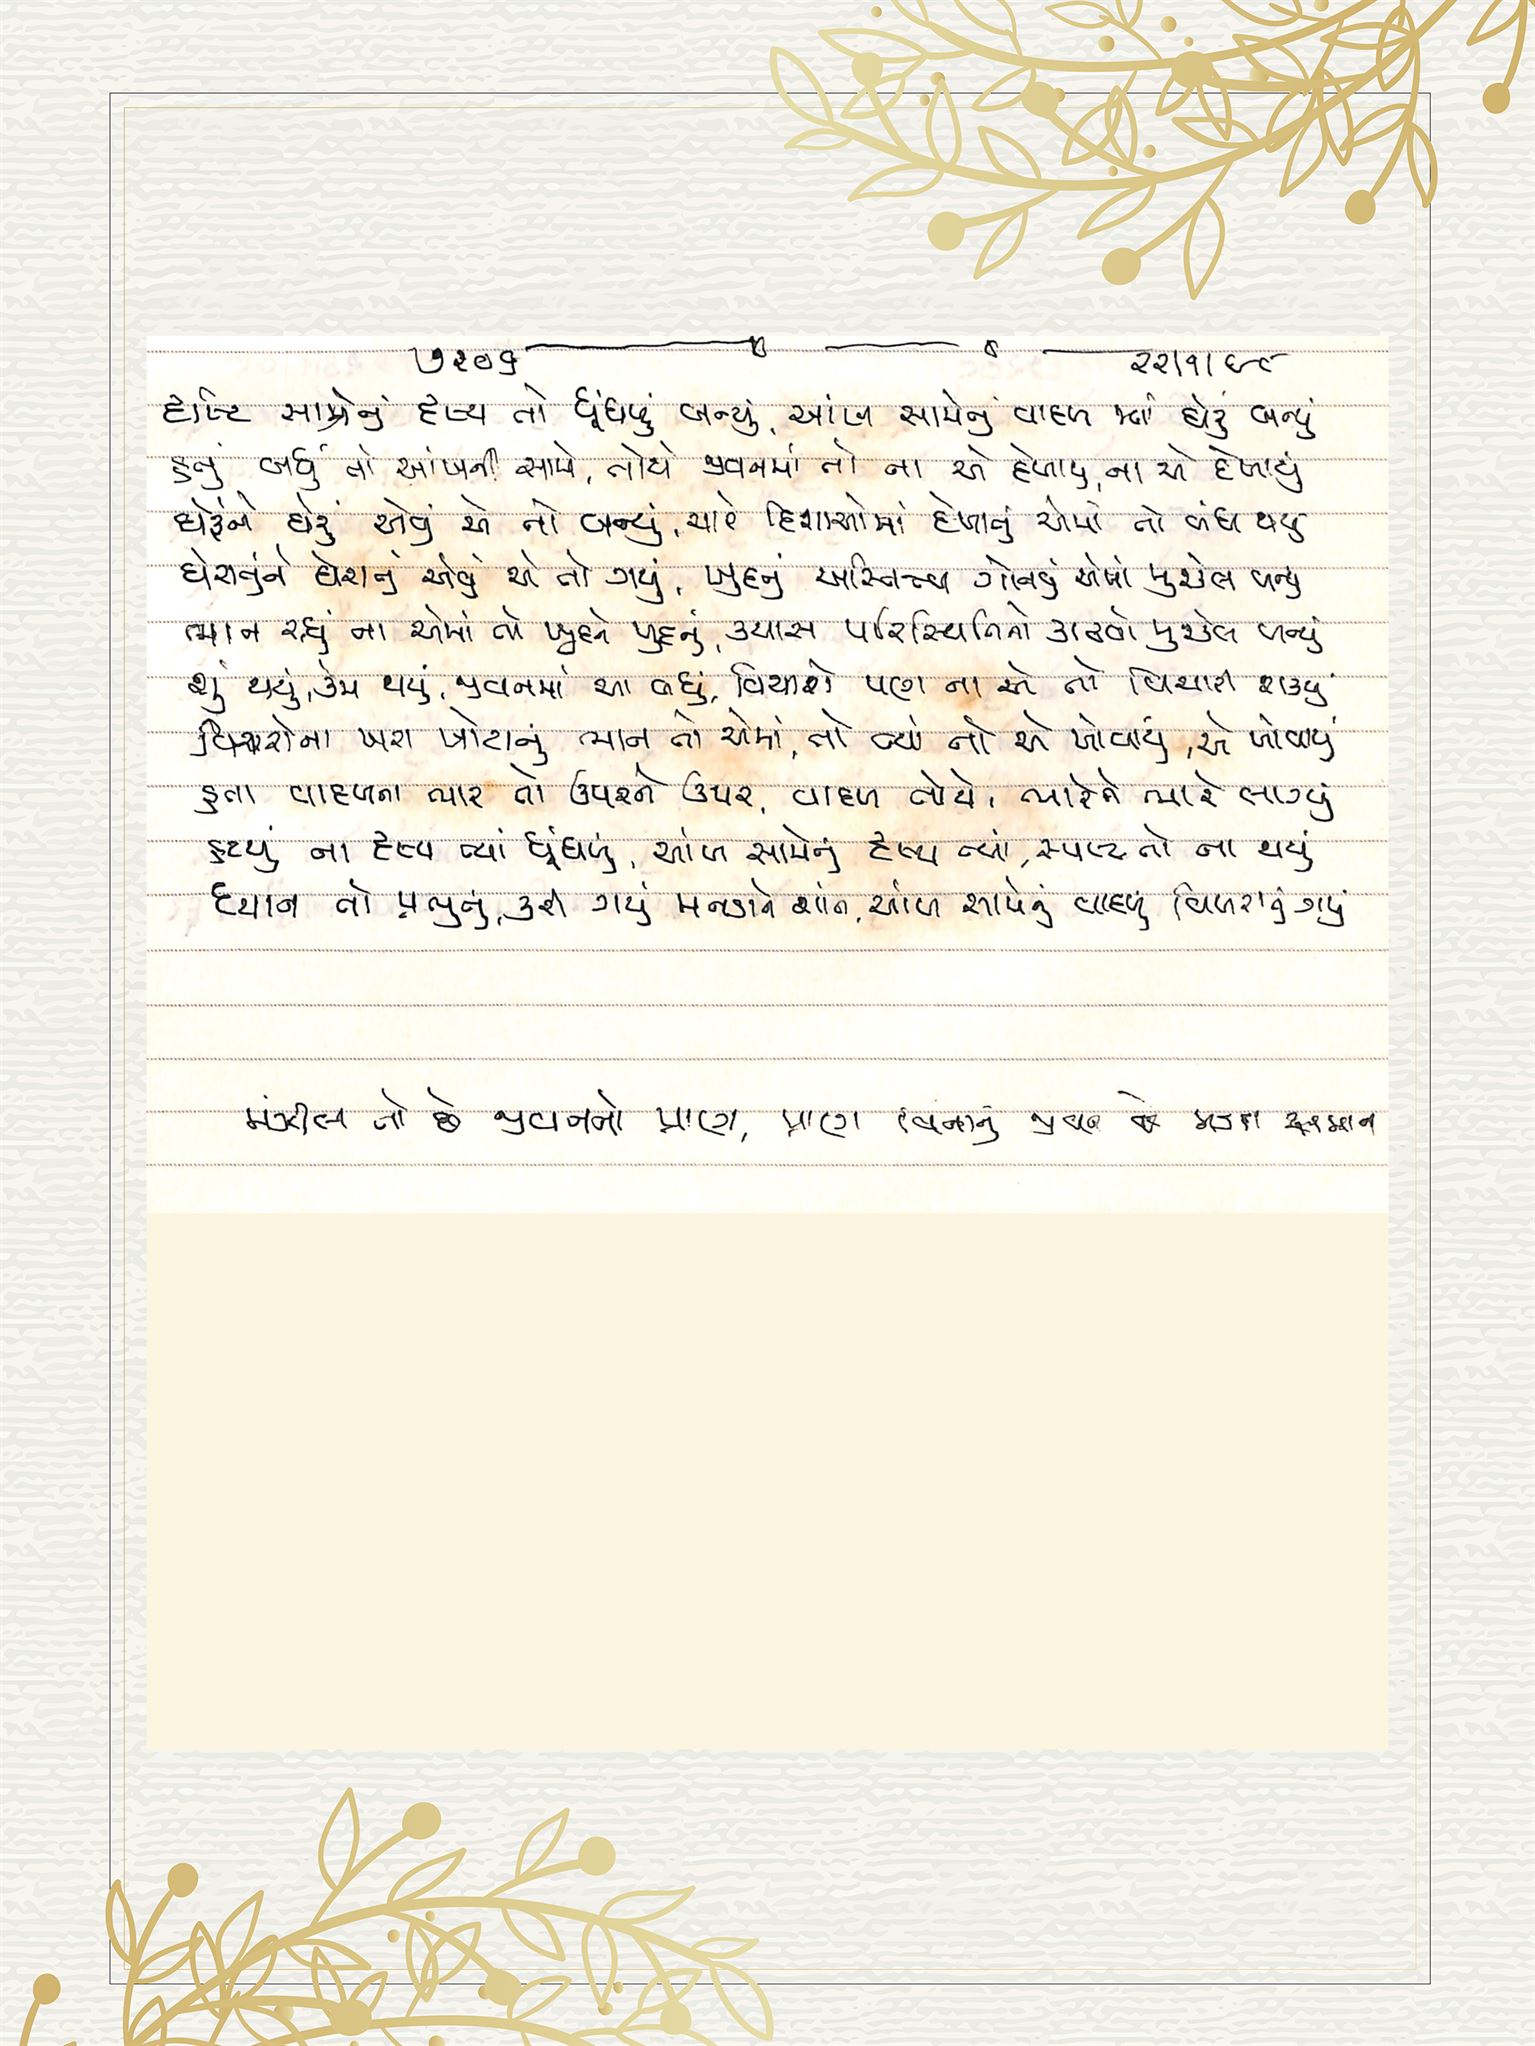 ૭૨૦૬ ૨૨/૧/૯૮
દૃષ્ટિ સામેનું દૃશ્ય તો ધૂંધળું બન્યું, આંખ સામેનું વાદળ જ્યાં ઘેરું બન્યું
હતું બધું તો આંખની સામે, તોયે જીવનમાં તો ના એ દેખાયું, ના એ દેખાયું
ઘેરુંને ઘેરું એવું એ તો બન્યું, ચારે દિશાઓમાં દેખાતું એમાં તો બંધ થયું
ઘેરાતુંને ઘેરાતું એવું એ તો ગયું, ખુદનું અસ્તિત્વ ગોતવું એમાં મુશ્કેલ બન્યું
ભાન રહ્યું ના એમાં તો ખુદને ખુદનું, ક્યાસ પરિસ્થિતિનો કાઢવો મુશ્કેલ બન્યું
શું થયું, કેમ થયું, જીવનમાં આ બધું, વિચારો પણ ના એ તો વિચારી શક્યું
વિચારોના ખરા ખોટાનું ભાન તો એમાં, તો ત્યાં તો એ ખોવાયું, એ ખોવાયું
હતા વાદળના ભાર તો ઉપરને ઉપર, વાદળ તોયે ભારેને ભારે લાગ્યું
હટયું ના દૃશ્ય ત્યાં ધૂંધળું, આંખ સામેનું દૃશ્ય ત્યાં, સ્પષ્ટ તો ના થયું
ધ્યાન તો પ્રભુનું, કરી ગયું મનડાને શાંત, આંખ સામેનું વાદળ વિખરાતું ગયું
મંઝીલ તો છે જીવનનો પ્રાણ, પ્રાણ વિનાનું જીવન છે મડદા સમાન